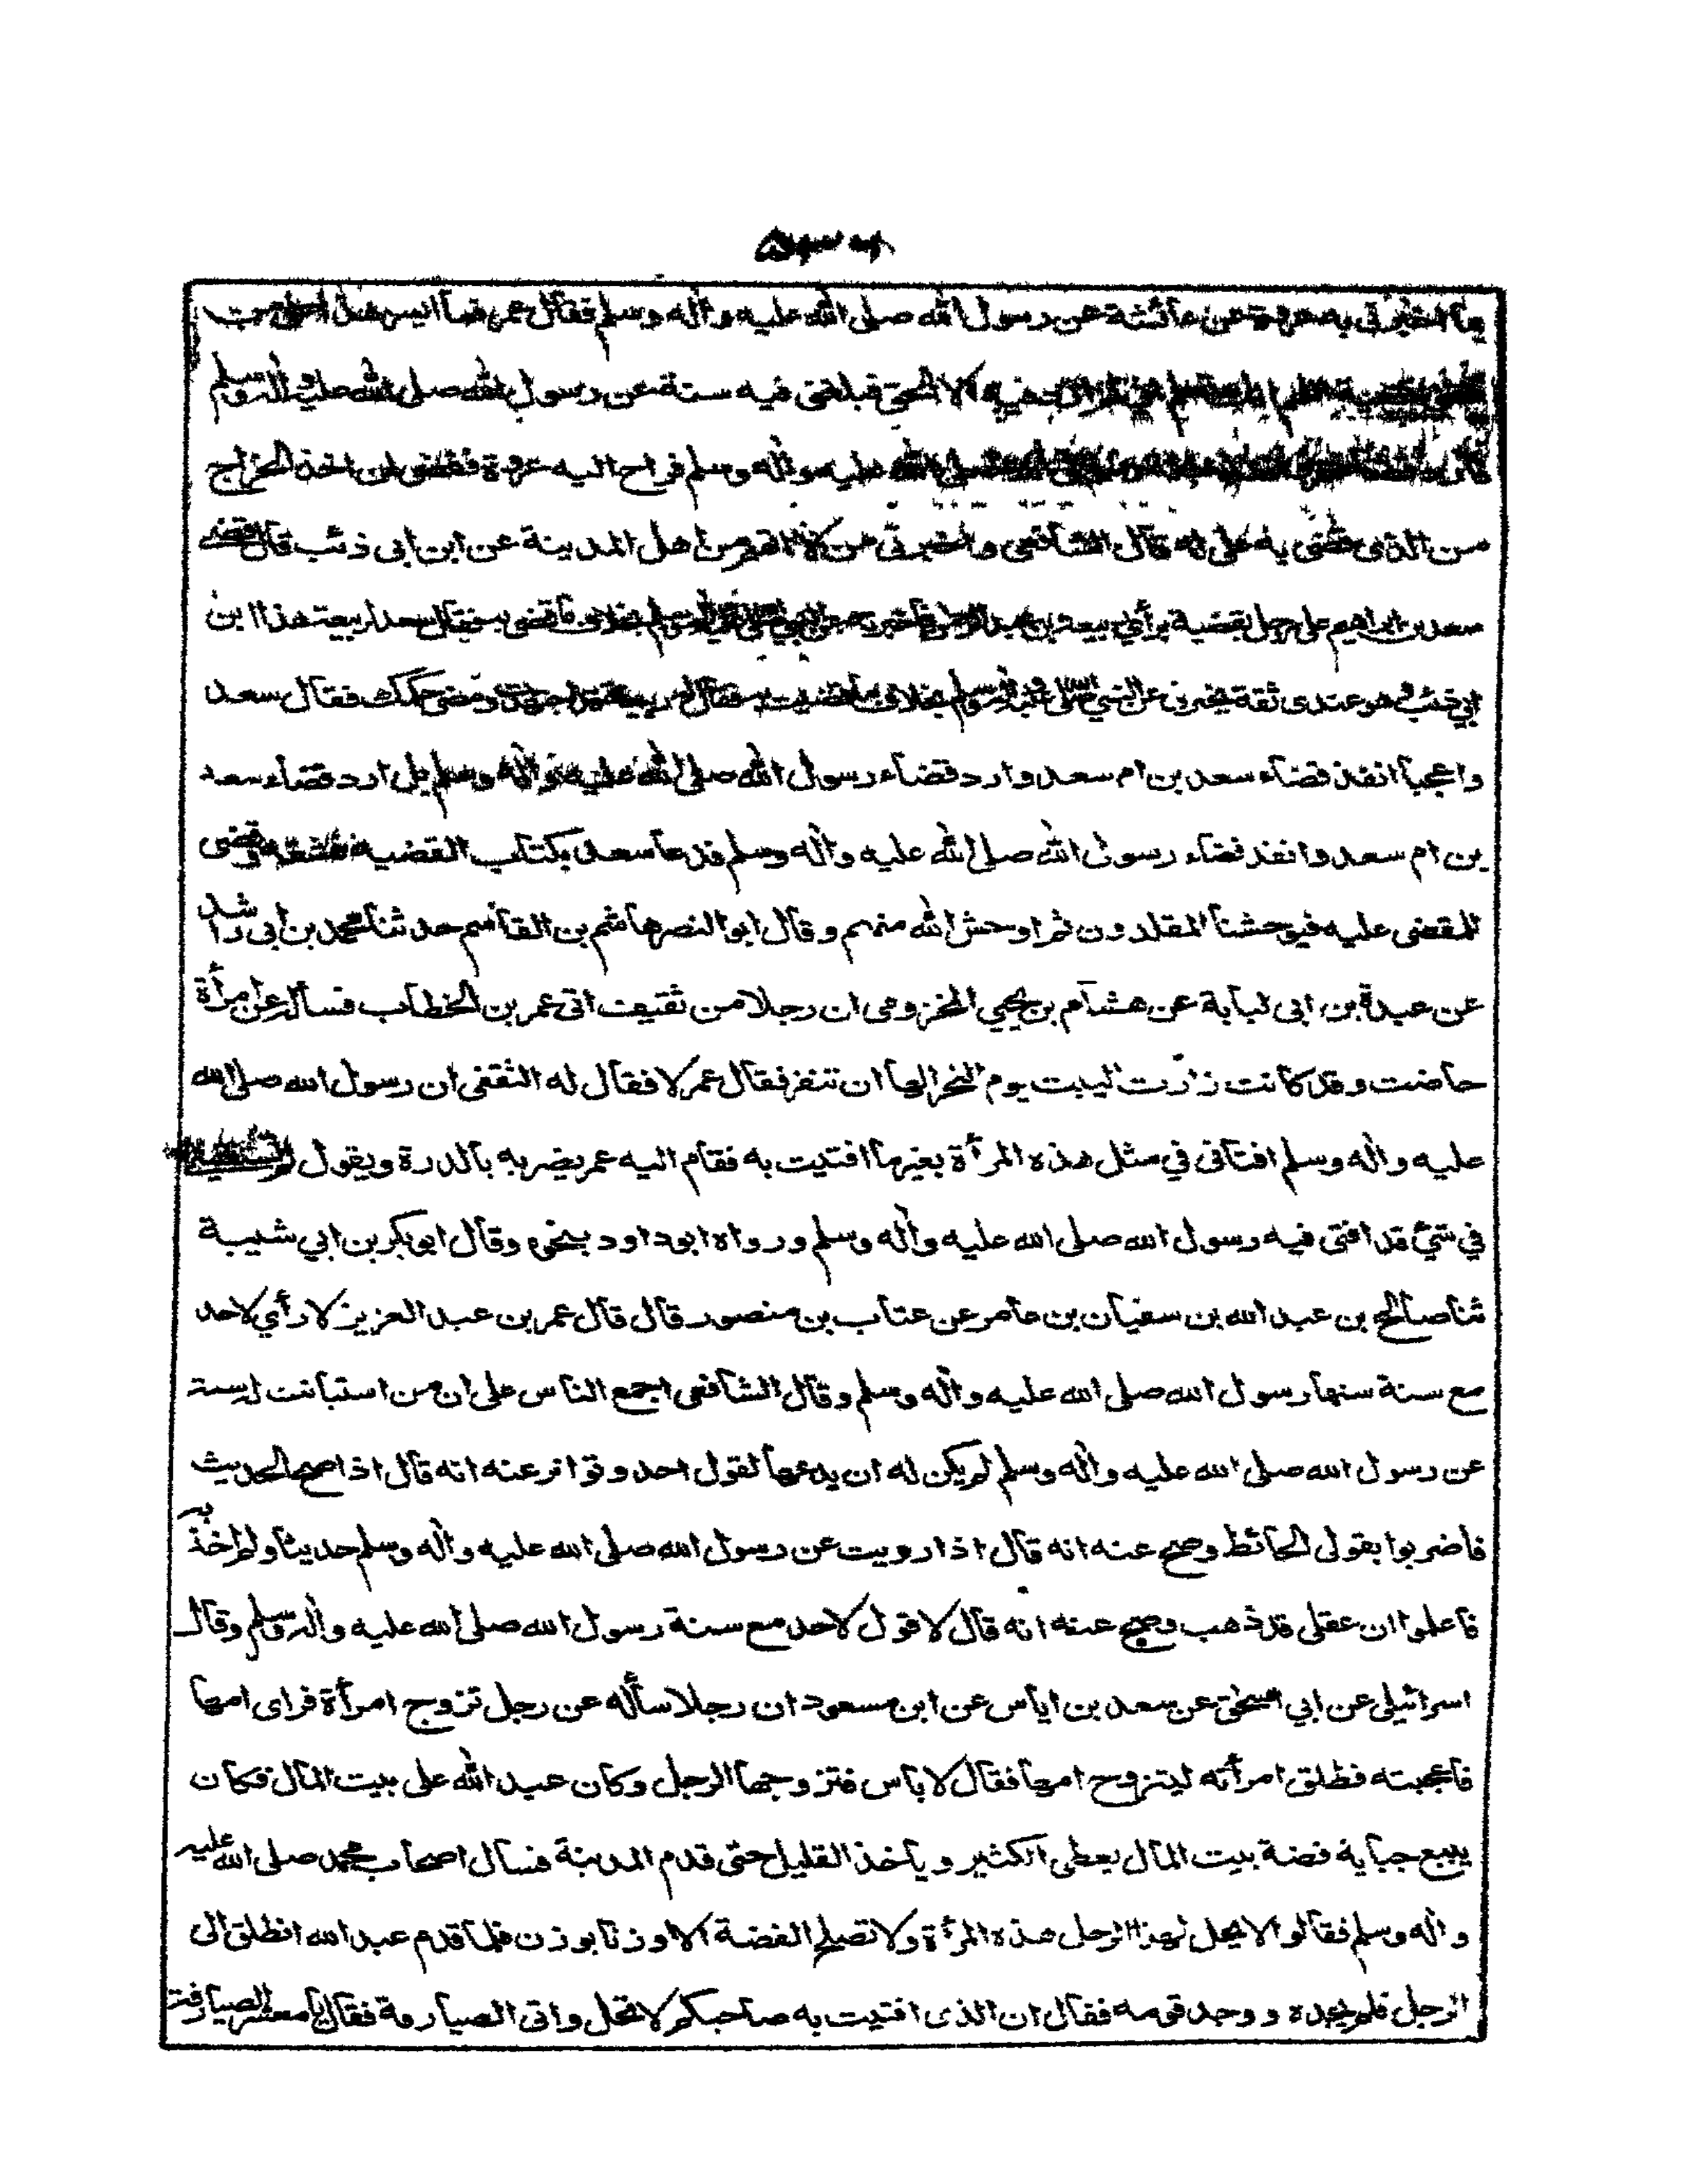 بما اخبرنى به عروة عن عائشة عن رسول الله صلى الله عليه وآله وسلم فقال عمر فما ايسر هذا
فيه سنة عن رسول الله صلى الله عليه وآله وسلم
عليه وآله وسلم فراح اليه عروة فقضى لى ان اخذ الخراج
من الذى قضى به على له قال الشافعى واخبرنى من لا اتهم من اهل المدينة عن ابن ابى ذئب قال قضى
سعد بن ابراهيم على رجل بقضية برأى ربيعة بن فقال سعد لربيعة هذا ابن
ابي ذئب وهو عندى ثقة يخبرنى عن النبي صلى الله عليه وآله وسلم بخلاف ما قضيت به فقال له ربيعة قد اجتهدت ومضى حكمك فقال سعد
واعجبا انفذ قضاء سعد بن ام سعد وارد قضاء رسول الله صلى الله عليه وآله وسلم بل ارد قضاء سعد
بن ام سعد وانفذ قضاء رسول الله صلى الله عليه وآله وسلم فدعا سعد بكتاب القضية فشقه وقضى
للمقضى عليه فيوحشنا المقلدون ثم اوحش الله منهم وقال ابو النصر هاشم بن القاسم حدثنا محمد بن ابى راشد
عن عبدة بن ابى لبابة عن هشام بن يحيي المخزومى ان رجلا من ثقيف اتى عمر بن الخطاب فسأله عن امرأة
حاضت وقد كانت زارت البيت يوم النحر الها ان تنفر فقال عمر لا فقال له الثقفى ان رسول الله صلى الله
عليه وآله وسلم افتانى في مثل هذه المرأة بغير ما افتيت به فقام اليه عمر يضربه بالدرة ويقول
في شئ قد افتى فيه رسول الله صلى الله عليه وآله وسلم ورواه ابوداود بنحوه وقال ابوبكر بن ابي شيبة
ثنا صالح بن عبد الله بن سفيان بن عامر عن عتاب بن منصور قال قال عمر بن عبد العزيز لا رأي لاحد
مع سنة سنها رسول الله صلى الله عليه وآله وسلم وقال الشافعى اجمع الناس على ان من استبانت له سنة
عن رسول الله صلى الله عليه وآله وسلم لم يكن له ان يدعها لقول احد وتواتر عنه انه قال اذا صح الحديث
فاضربوا بقولى الحائط وصح عنه انه قال اذا رويت عن رسول الله صلى الله عليه وآله وسلم حديثا ولم اخذ به
فاعلموا ان عقلى قد ذهب وصح عنه انه قال لا قول لاحد مع سنة رسول الله صلى الله عليه وآله وسلم وقال
اسرائيلى عن ابي اسحق عن سعد بن اياس عن ابن مسعود ان رجلا سأله عن رجل تزوج امرأة فراى امها
فاعجبته فطلق امرأته ليتزوج امها فقال لا باس فتزوجها الرجل وكان عبد الله على بيت المال فكان
يبيع جباية فضة بيت المال يعطى الكثير وياخذ القليل حتى قدم المدينة فسال اصحاب محمد صلى الله عليه
وآله وسلم فقالوا لا يحل لهذا الرجل هذه المرأة ولا تصلح الفضة الا وزنا بوزن فلما قدم عبد الله انطلق الى
الرجل فلم يجده ووجد قومه فقال ان الذى افتيت به صاحبكم لا تحل واتى الصيارفة فقال يا معشر الصيارفة